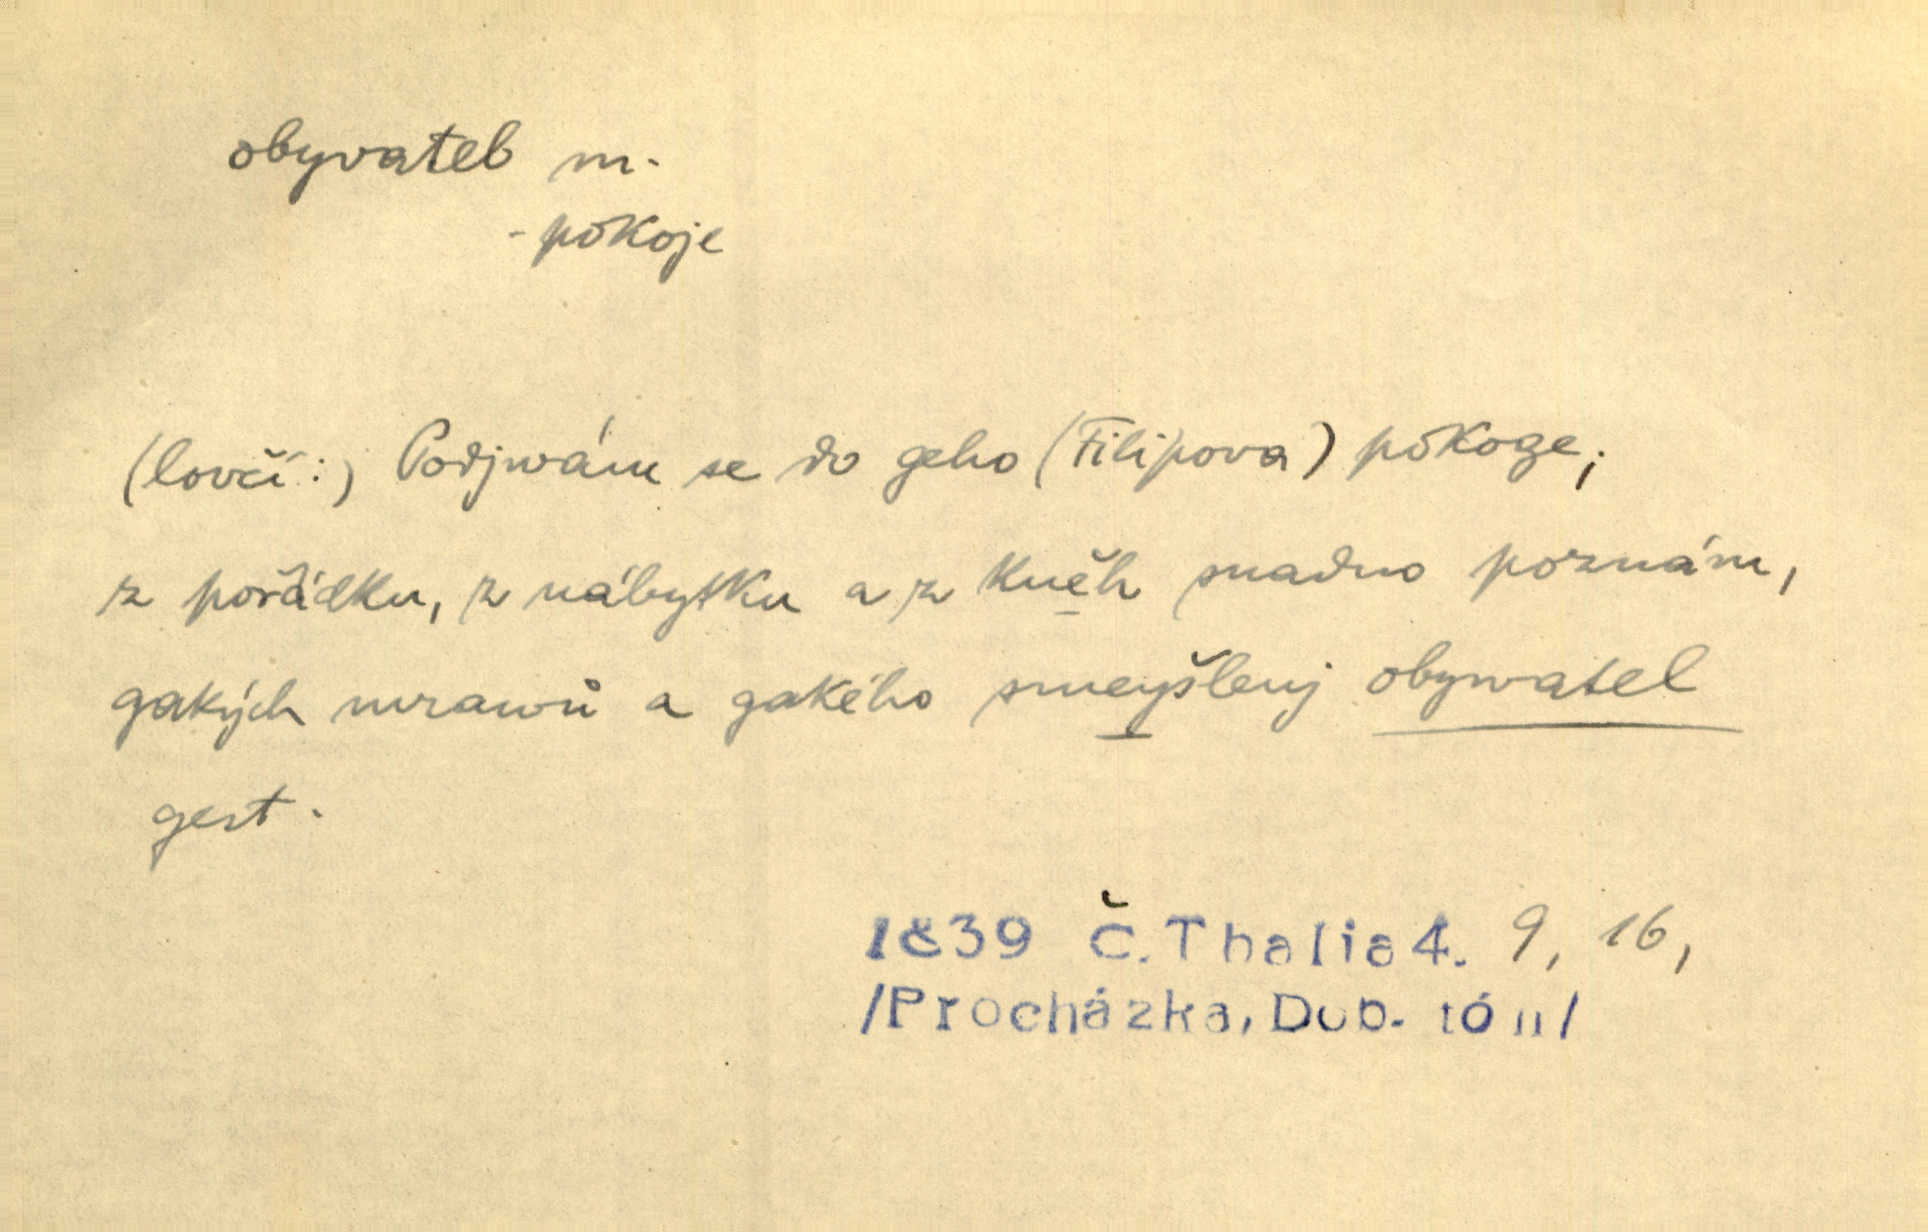 obyvatel m.
- pokoje
(lovčí:) Podjwám se do geho (Filipova) pokoge;
z pořádku, z nábytku a z kněh snadno poznám,
gakých mrawů a gakého smeyšlenj obywatel
gest.
1839 Č. Thalia 4. 9, 16,
/Procházka, Dob. tón/